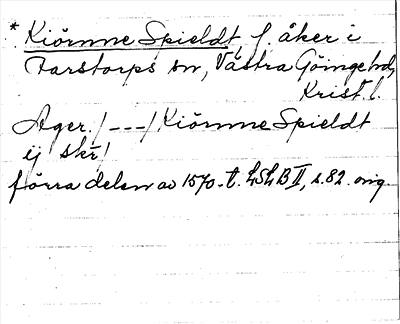 * Kiörnne Spieldt, f åker i
Farstorps sn, Västra Göinge hd,
Krist. l.
Ager. /---/ Kiörnne Spieldt
ej skr/
förra delen av 1570-t. LSLB II, s. 82. orig.